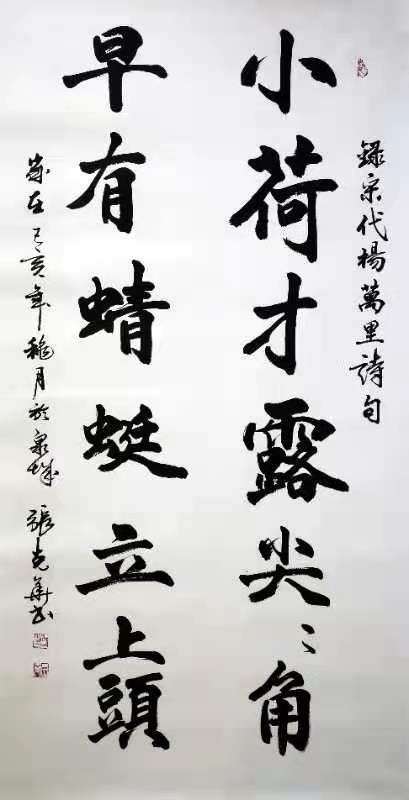 錄宋代楊萬里詩句
小荷才露尖〻角
早有蜻蜓立上頭
歲在己亥年穐月於泉城 張華书